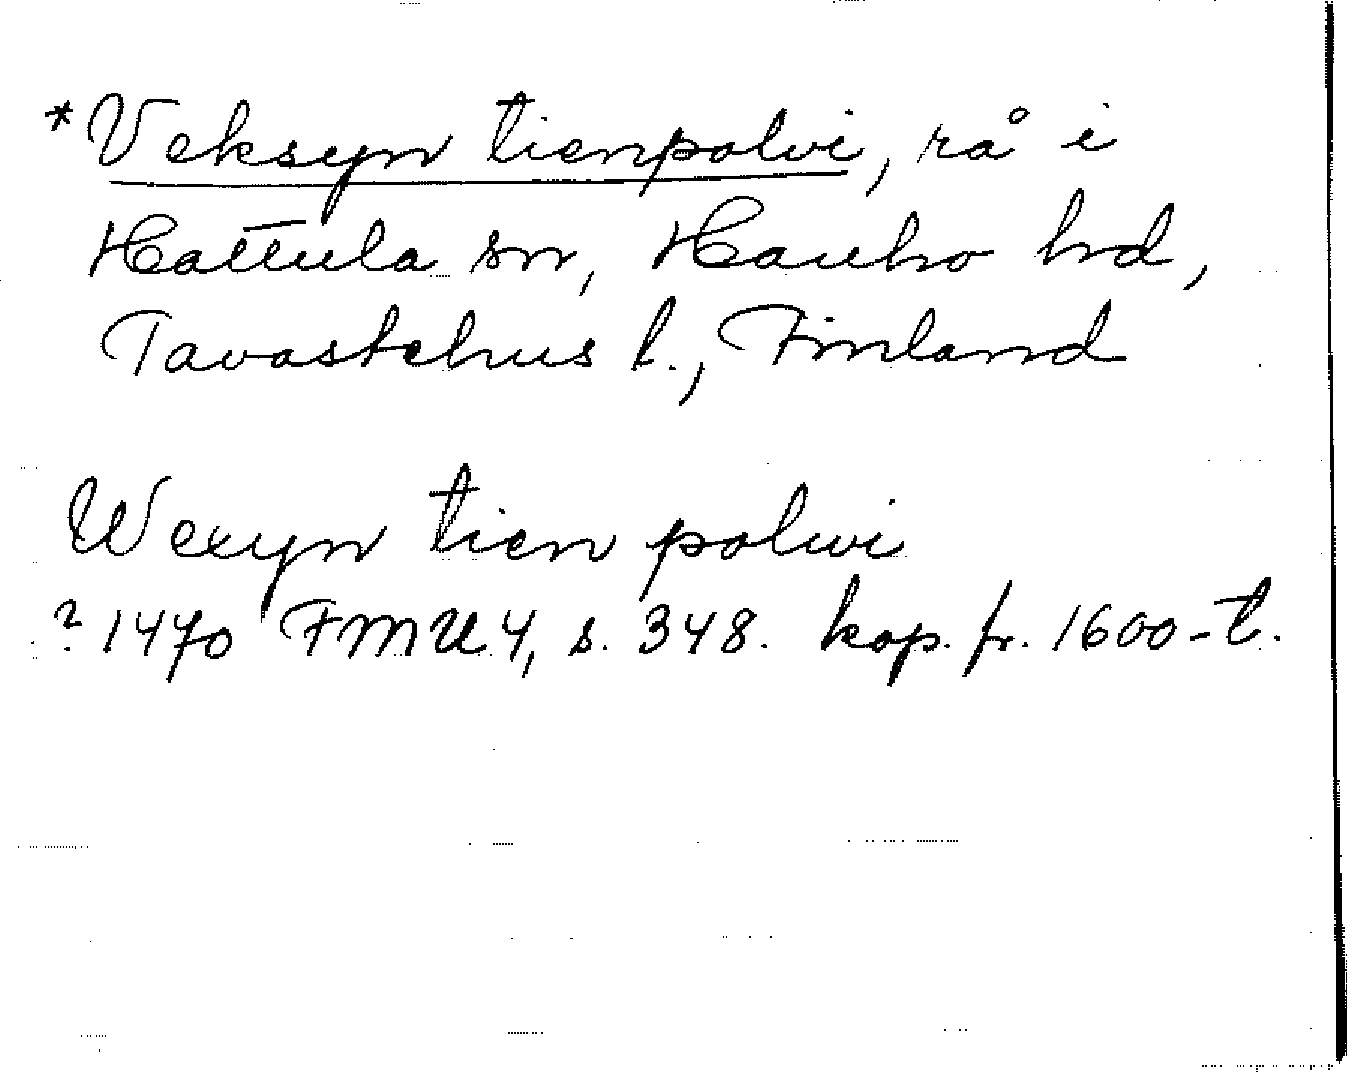 *Veksyn tienpolvi, rå i
Hattula sn, Hauho hd,
Tavastehus l., Finland
Wexyn tien polwi
? 1470 FMU 4, s. 348. kop. fr. 1600-t.